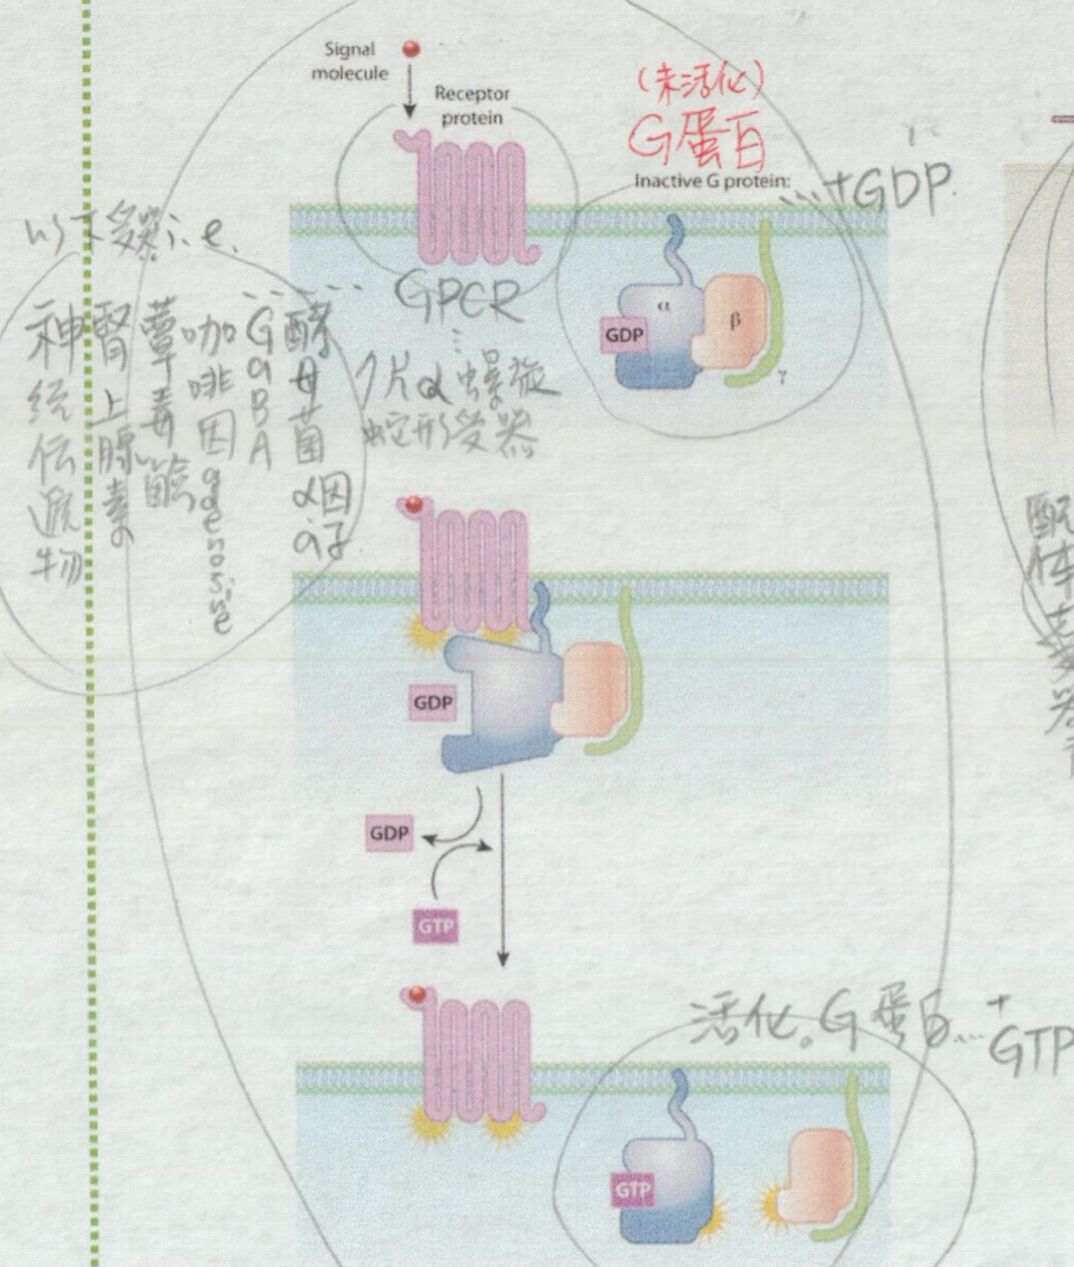 Signal
molecule
Receptor
protein
(未活化)
G蛋白
Inactive G protein:
+GDP.
以下受器 i.e.
神統伝遞物
腎上腺素
蕈毒鹼
咖啡因adenosine
GaBA
酵母菌α因子
GPCR
7片α螺旋
蛇形受器
α
β
γ
GDP
GDP
GDP
GTP
活化。G蛋白...+
GTP
GTP